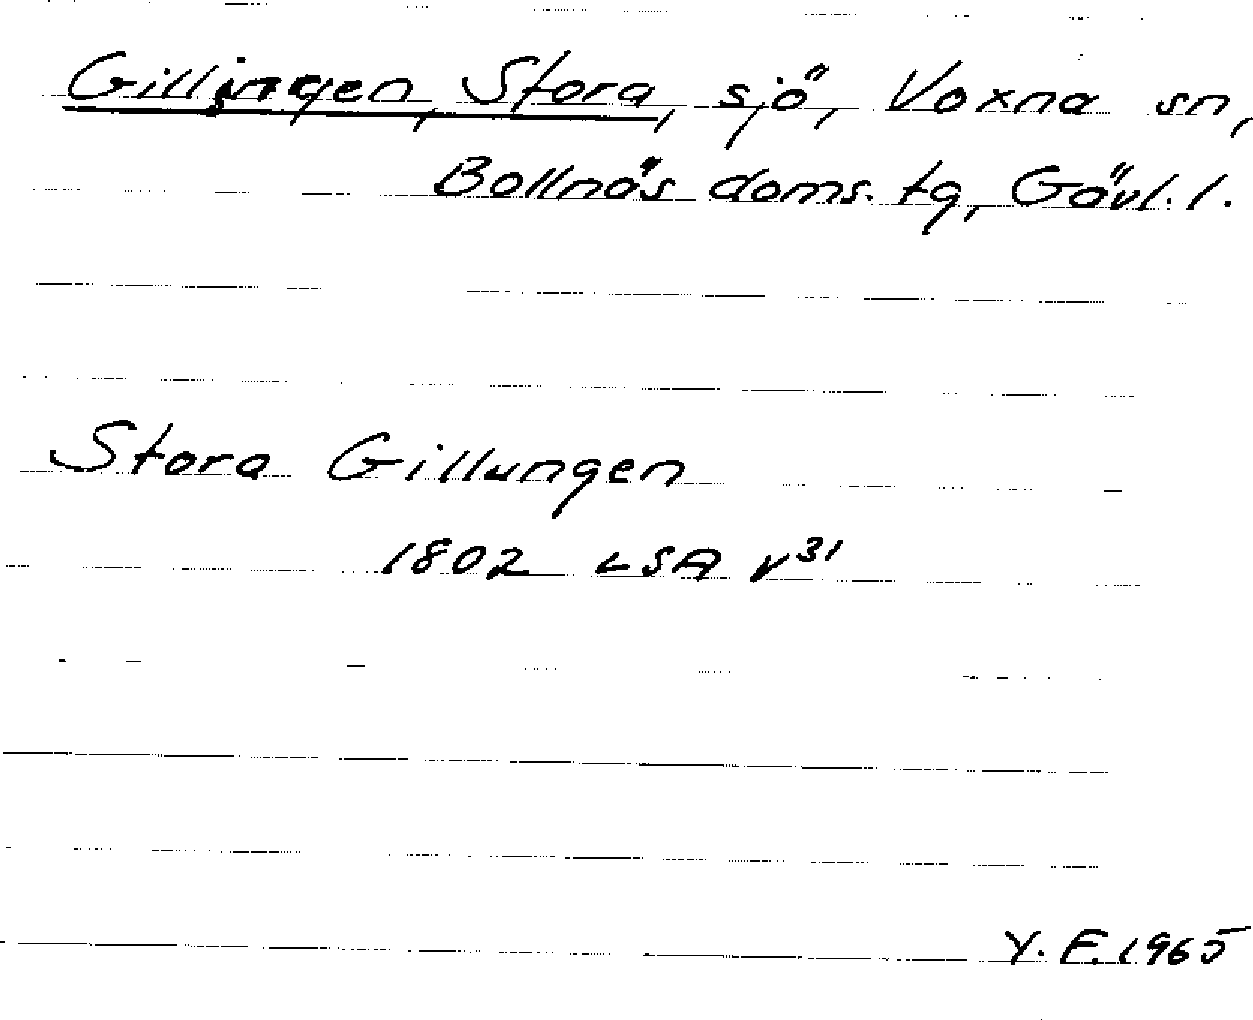 Gillingen, Stora, sjö, Voxna sn,
Bollnäs doms. tg, Gävl. l.
Stora Gillungen
1802 LSA v³¹
Y. F. 1965